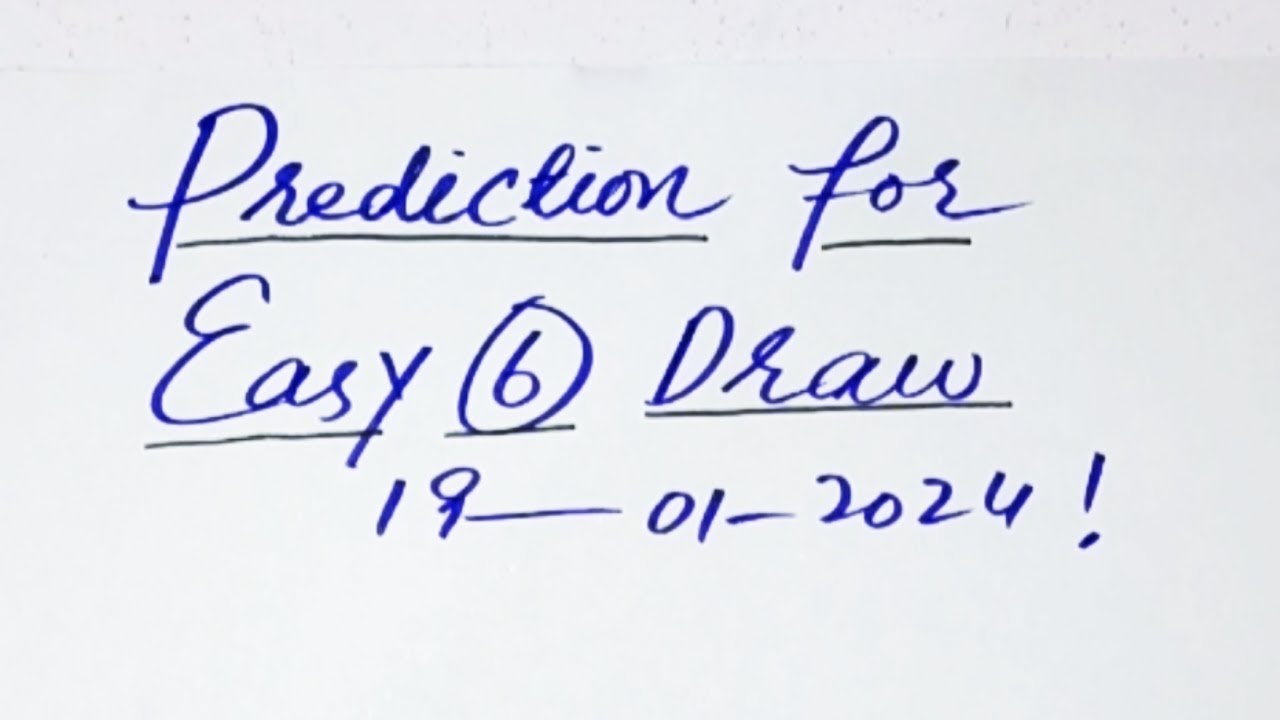 Prediction for
Easy 6 Draw
19-01-2024!